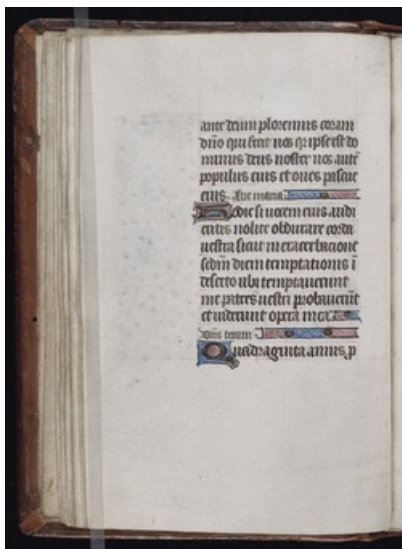 ante deum ploremus coram
dño qui fecit nos qr ipse est do
minus deus noster nos auté
populus eius et oues pascue
eius. Aue maria
Hodie si uocem eius audi
eritis nolite obdurare corda
uestra sicut in exacerbacione
sedm diem temptationis ĩ
deserto ubi temptauerunt
me patres uestri probauerũt
et uiderunt opera mea
Dñs tecum
Quadraginta annis p